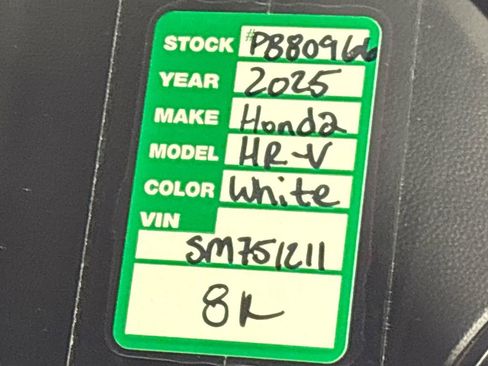 STOCK #PB80966
YEAR 2025
MAKE Honda
MODEL HR-V
COLOR White
VIN
SM751211
8K